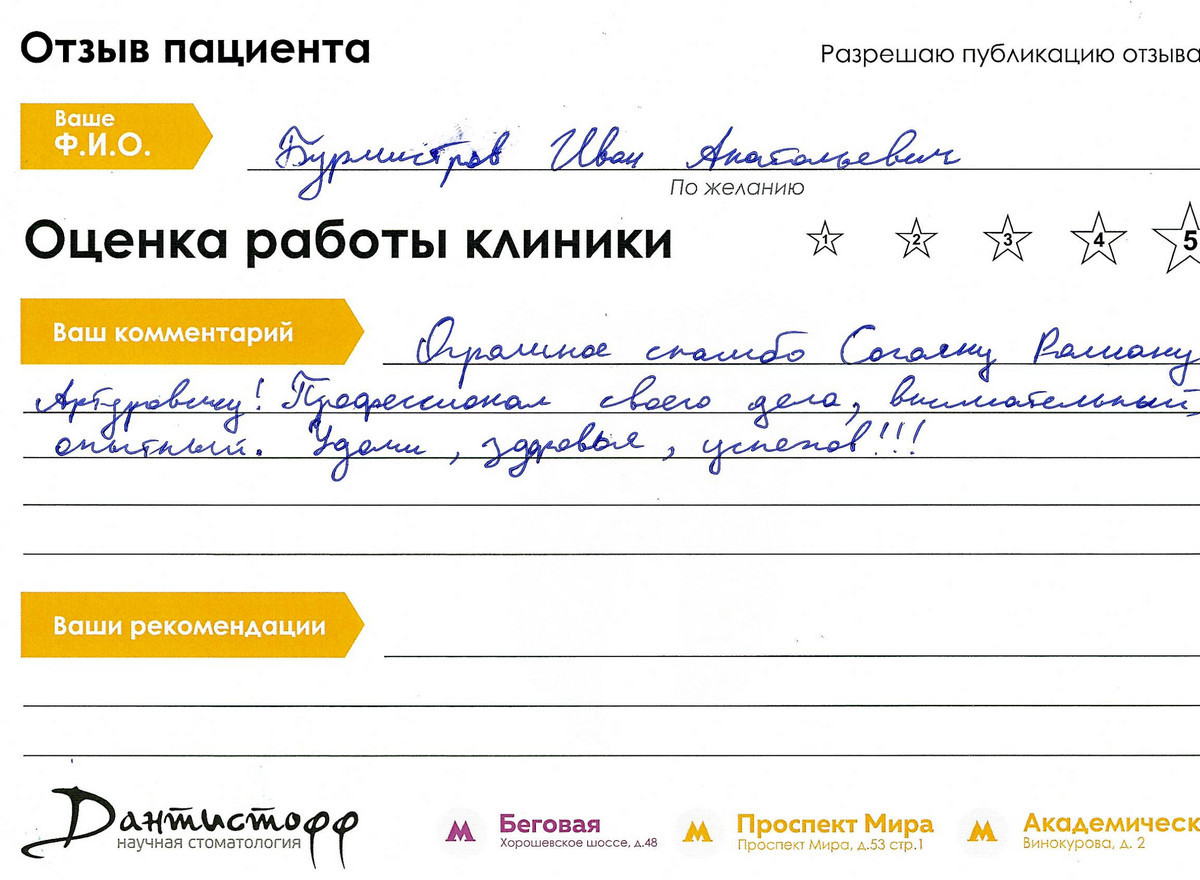 Отзыв пациента
Разрешаю публикацию отзыва
Ваше
Ф.И.О.
Бурмистров Иван Анатольевич
По желанию
Оценка работы клиники
1 2 3 4 5
Ваш комментарий
Огромное спасибо Согояну Роману
Артуровичу! Профессионал своего дела, внимательный,
опытный. Удачи, здоровья, успехов!!!
Ваши рекомендации
Дантистофф
научная стоматология
Беговая
Хорошевское шоссе, д.48
Проспект Мира
Проспект Мира, д.53 стр.1
Академическ
Винокурова, д. 2